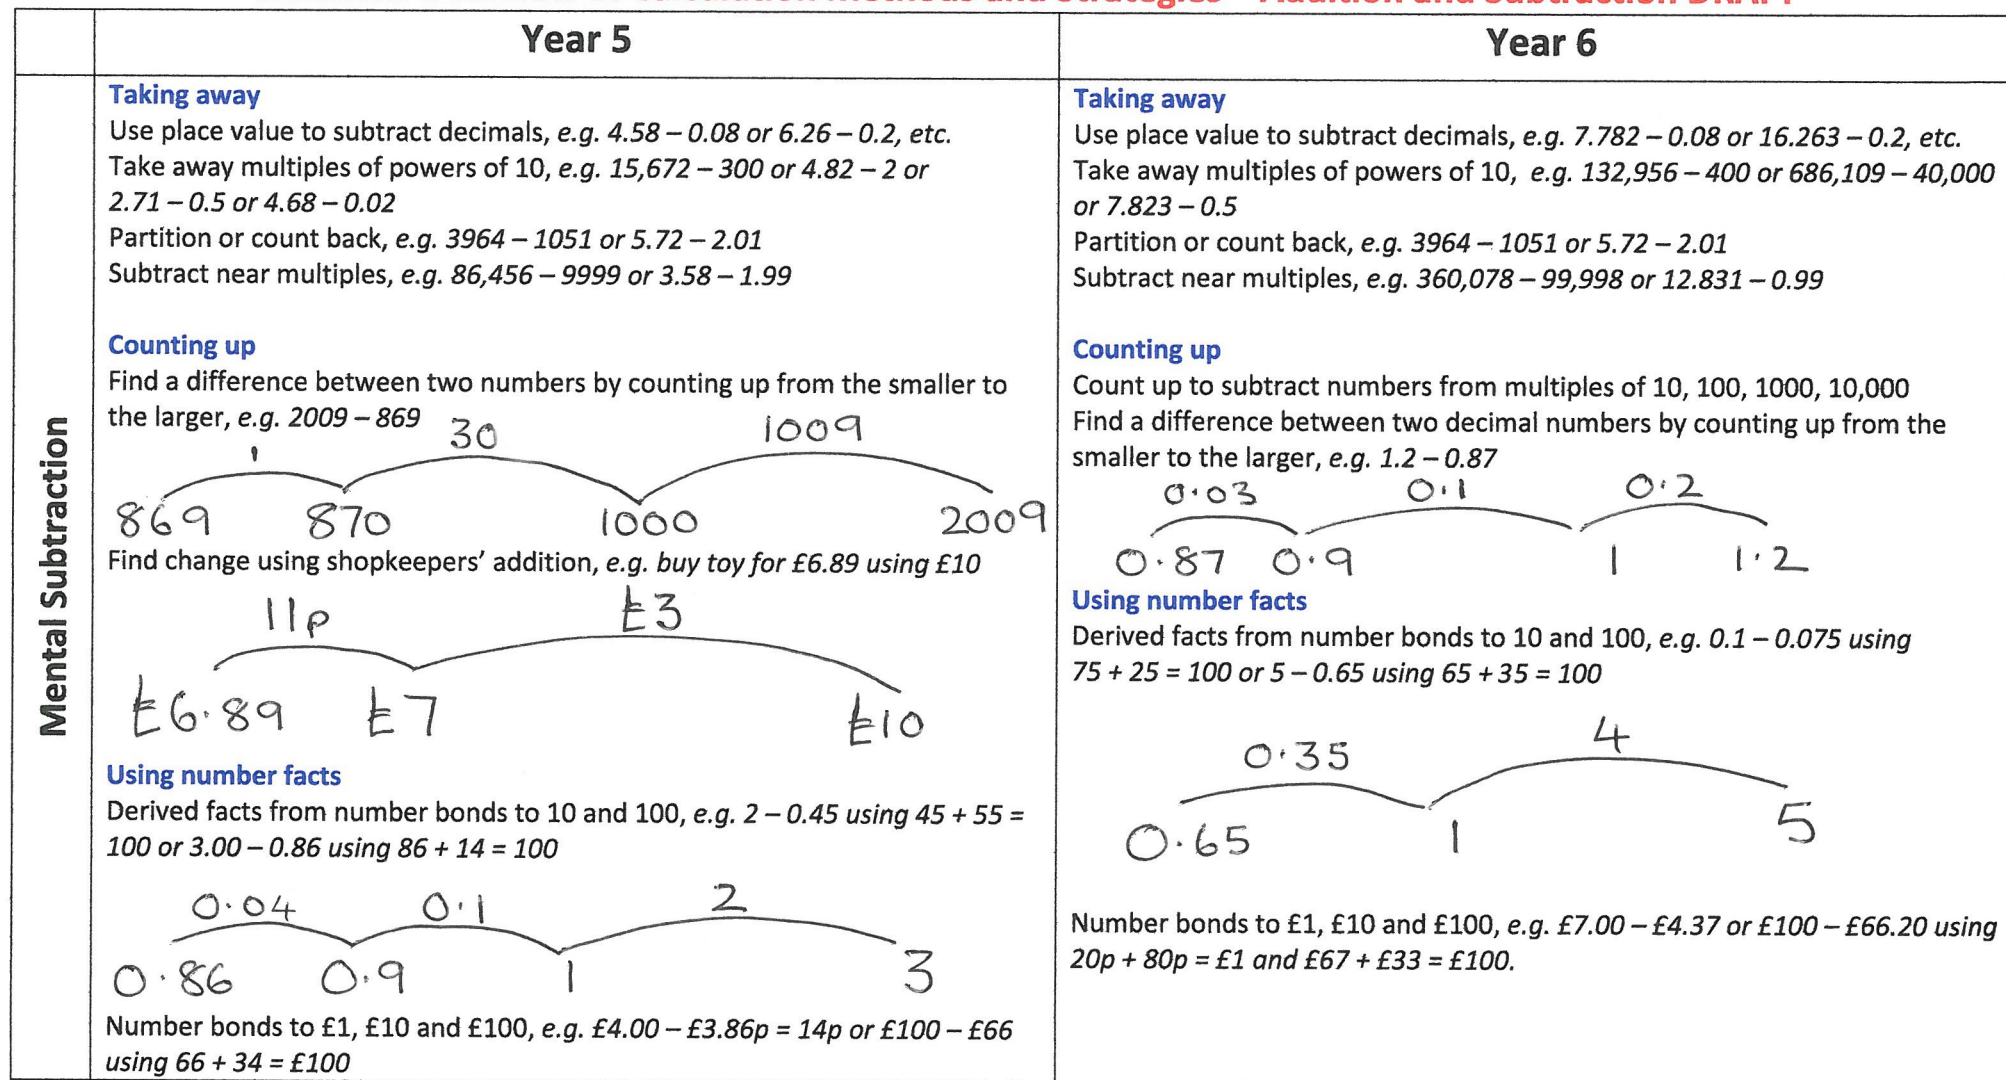 Year 5
Year 6
Mental Subtraction
Taking away
Use place value to subtract decimals, e.g. 4.58 – 0.08 or 6.26 – 0.2, etc.
Take away multiples of powers of 10, e.g. 15,672 – 300 or 4.82 – 2 or
2.71 – 0.5 or 4.68 – 0.02
Partition or count back, e.g. 3964 – 1051 or 5.72 – 2.01
Subtract near multiples, e.g. 86,456 – 9999 or 3.58 – 1.99
Counting up
Find a difference between two numbers by counting up from the smaller to
the larger, e.g. 2009 – 869
1 30 1009
869 870 1000 2009
Find change using shopkeepers’ addition, e.g. buy toy for £6.89 using £10
11p £3
£6.89 £7 £10
Using number facts
Derived facts from number bonds to 10 and 100, e.g. 2 – 0.45 using 45 + 55 =
100 or 3.00 – 0.86 using 86 + 14 = 100
0.04 0.1 2
0.86 0.9 1 3
Number bonds to £1, £10 and £100, e.g. £4.00 – £3.86p = 14p or £100 – £66
using 66 + 34 = £100
Taking away
Use place value to subtract decimals, e.g. 7.782 – 0.08 or 16.263 – 0.2, etc.
Take away multiples of powers of 10, e.g. 132,956 – 400 or 686,109 – 40,000
or 7.823 – 0.5
Partition or count back, e.g. 3964 – 1051 or 5.72 – 2.01
Subtract near multiples, e.g. 360,078 – 99,998 or 12.831 – 0.99
Counting up
Count up to subtract numbers from multiples of 10, 100, 1000, 10,000
Find a difference between two decimal numbers by counting up from the
smaller to the larger, e.g. 1.2 – 0.87
0.03 0.1 0.2
0.87 0.9 1 1.2
Using number facts
Derived facts from number bonds to 10 and 100, e.g. 0.1 – 0.075 using
75 + 25 = 100 or 5 – 0.65 using 65 + 35 = 100
0.35 4
0.65 1 5
Number bonds to £1, £10 and £100, e.g. £7.00 – £4.37 or £100 – £66.20 using
20p + 80p = £1 and £67 + £33 = £100.